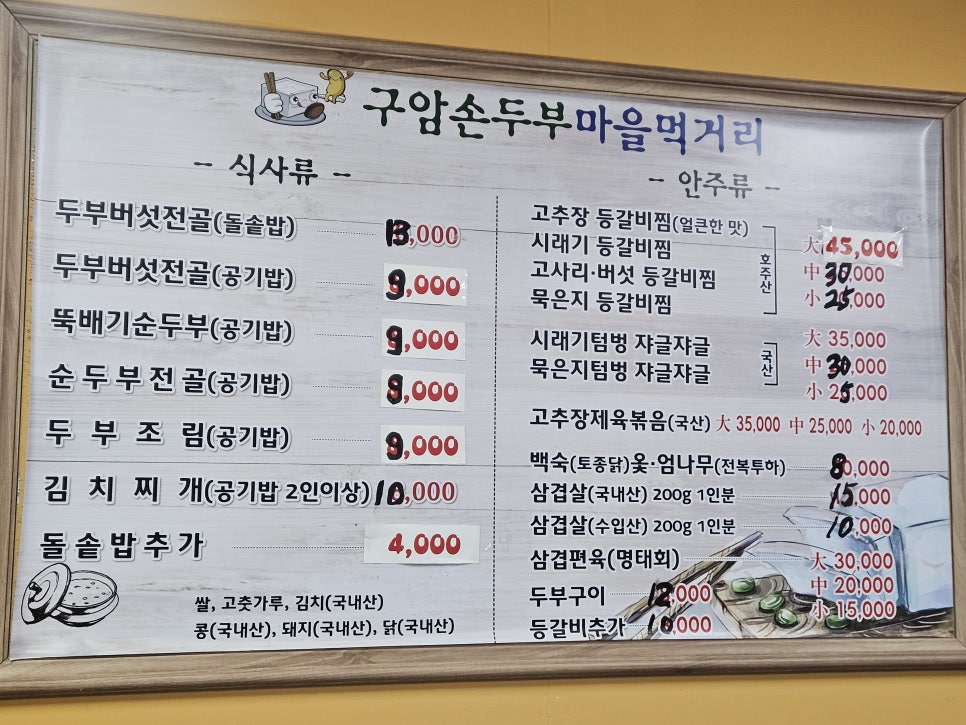 구암손두부마을먹거리
- 식사류 -
두부버섯전골(돌솥밥) 13,000
두부버섯전골(공기밥) 9,000
뚝배기순두부(공기밥) 9,000
순두부전골(공기밥) 9,000
두부조림(공기밥) 9,000
김치찌개(공기밥 2인이상) 10,000
돌솥밥추가 4,000
쌀, 고춧가루, 김치(국내산)
콩(국내산), 돼지(국내산), 닭(국내산)
- 안주류 -
고추장 등갈비찜(얼큰한 맛)
시래기 등갈비찜
고사리·버섯 등갈비찜
묵은지 등갈비찜
호주산
大 45,000
中 30,000
小 25,000
시래기텀벙 쟈글쟈글
묵은지텀벙 쟈글쟈글
국산
大 35,000
中 30,000
小 25,000
고추장제육볶음(국산) 大 35,000 中 25,000 小 20,000
백숙(토종닭)옻·엄나무(전복투하) 80,000
삼겹살(국내산) 200g 1인분 15,000
삼겹살(수입산) 200g 1인분 10,000
삼겹편육(명태회) 大 30,000
中 20,000
小 15,000
두부구이 12,000
등갈비추가 10,000